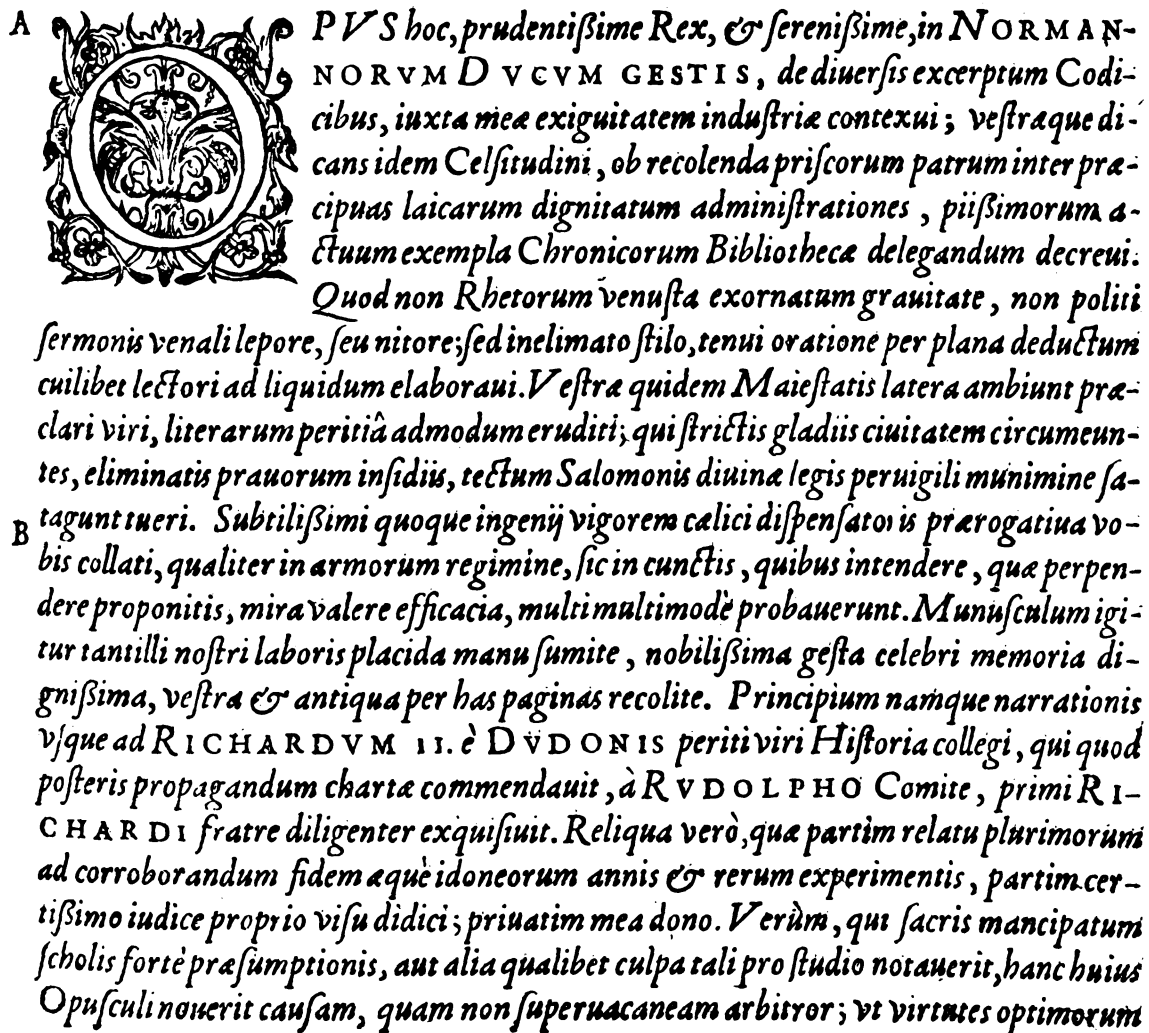 A OPVS hoc, prudentißime Rex, & ſerenißime, in NORMAN-
NORVM DVCVM GESTIS, de diuerſis excerptum Codi-
cibus, iuxta meæ exiguitatem induſtriæ contexui; veſtræque di-
cans idem Celſitudini, ob recolenda priſcorum patrum inter præ-
cipuas laicarum dignitatum adminiſtrationes, piißimorum a-
ctuum exempla Chronicorum Bibliothecæ delegandum decreui.
Quod non Rhetorum venuſta exornatum grauitate, non politi
ſermonis venali lepore, ſeu nitore; ſed inelimato ſtilo, tenui oratione per plana deductum
cuilibet lectori ad liquidum elaboraui. Veſtræ quidem Maieſtatis latera ambiunt præ-
clari viri, literarum peritiâ admodum eruditi; qui ſtrictis gladiis ciuitatem circumeun-
tes, eliminatis prauorum inſidiis, tectum Salomonis diuinæ legis peruigili munimine ſa-
B tagunt tueri. Subtilißimi quoque ingenij vigorem cælici diſpenſatoris prærogatiua vo-
bis collati, qualiter in armorum regimine, ſic in cunctis, quibus intendere, quæ perpen-
dere proponitis, mira valere efficacia, multi multimodè probauerunt. Munuſculum igi-
tur tantilli noſtri laboris placida manu ſumite, nobilißima geſta celebri memoria di-
gnißima, veſtra & antiqua per has paginas recolite. Principium namque narrationis
vſque ad RICHARDVM II. è DVDONIS periti viri Hiſtoria collegi, qui quod
poſteris propagandum chartæ commendauit, à RVDOLPHO Comite, primi RI-
CHARDI fratre diligenter exquiſiuit. Reliqua verò, quæ partim relatu plurimorum
ad corroborandum fidem æquè idoneorum annis & rerum experimentis, partim cer-
tißimo iudice proprio viſu didici; priuatim mea dono. Verùm, qui ſacris mancipatum
ſcholis fortè præſumptionis, aut alia qualibet culpa tali pro ſtudio notauerit, hanc huius
Opuſculi nouerit cauſam, quam non ſuperuacaneam arbitror; vt virtutes optimorum